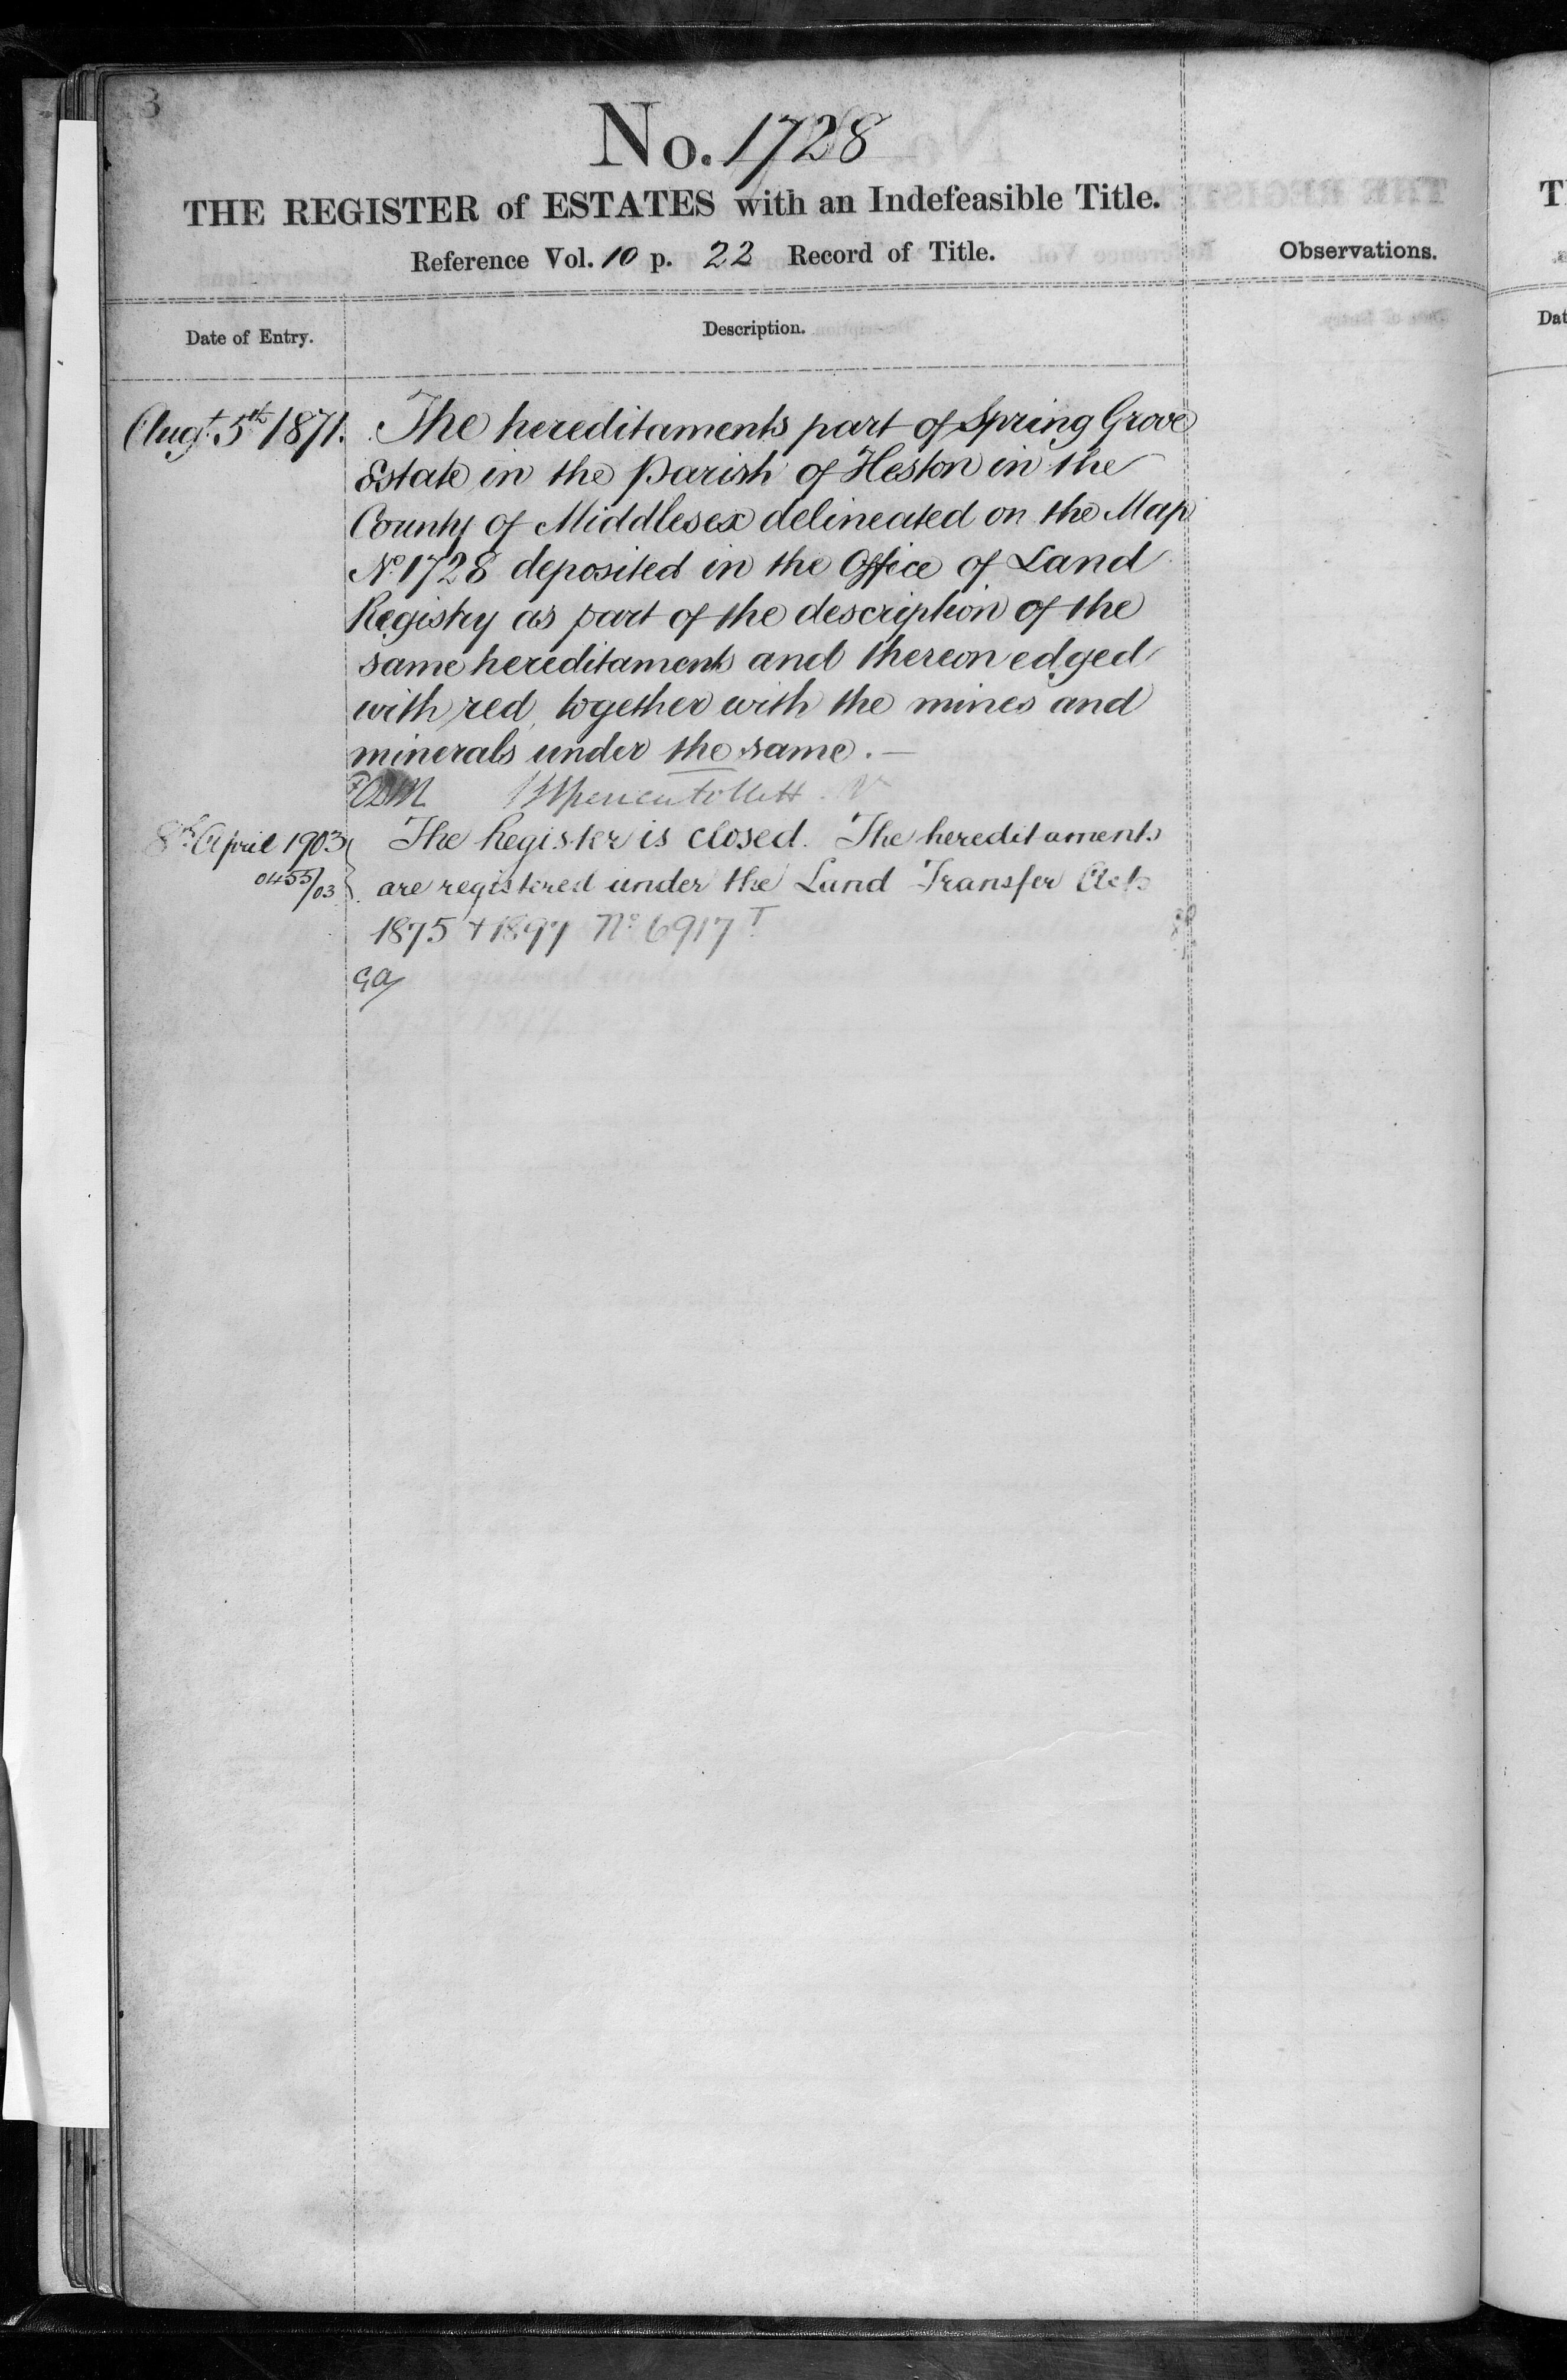 No. 1728
THE REGISTER of ESTATES with an Indefeasible Title.
Reference Vol. 10 p. 22 Record of Title.
Observations.
Date of Entry.
Description.
Augt. 5th 1871. The hereditaments part of Spring Grove
Estate in the Parish of Heston in the
County of Middlesex delineated on the Map
No. 1728 deposited in the Office of Land
Registry as part of the description of the
same hereditaments and thereon edged
with red, together with the mines and
minerals under the same. —
8th April 1903 The Register is closed. The hereditaments
0455/03 are registered under the Land Transfer Acts
1875 + 1897 No 6917 T